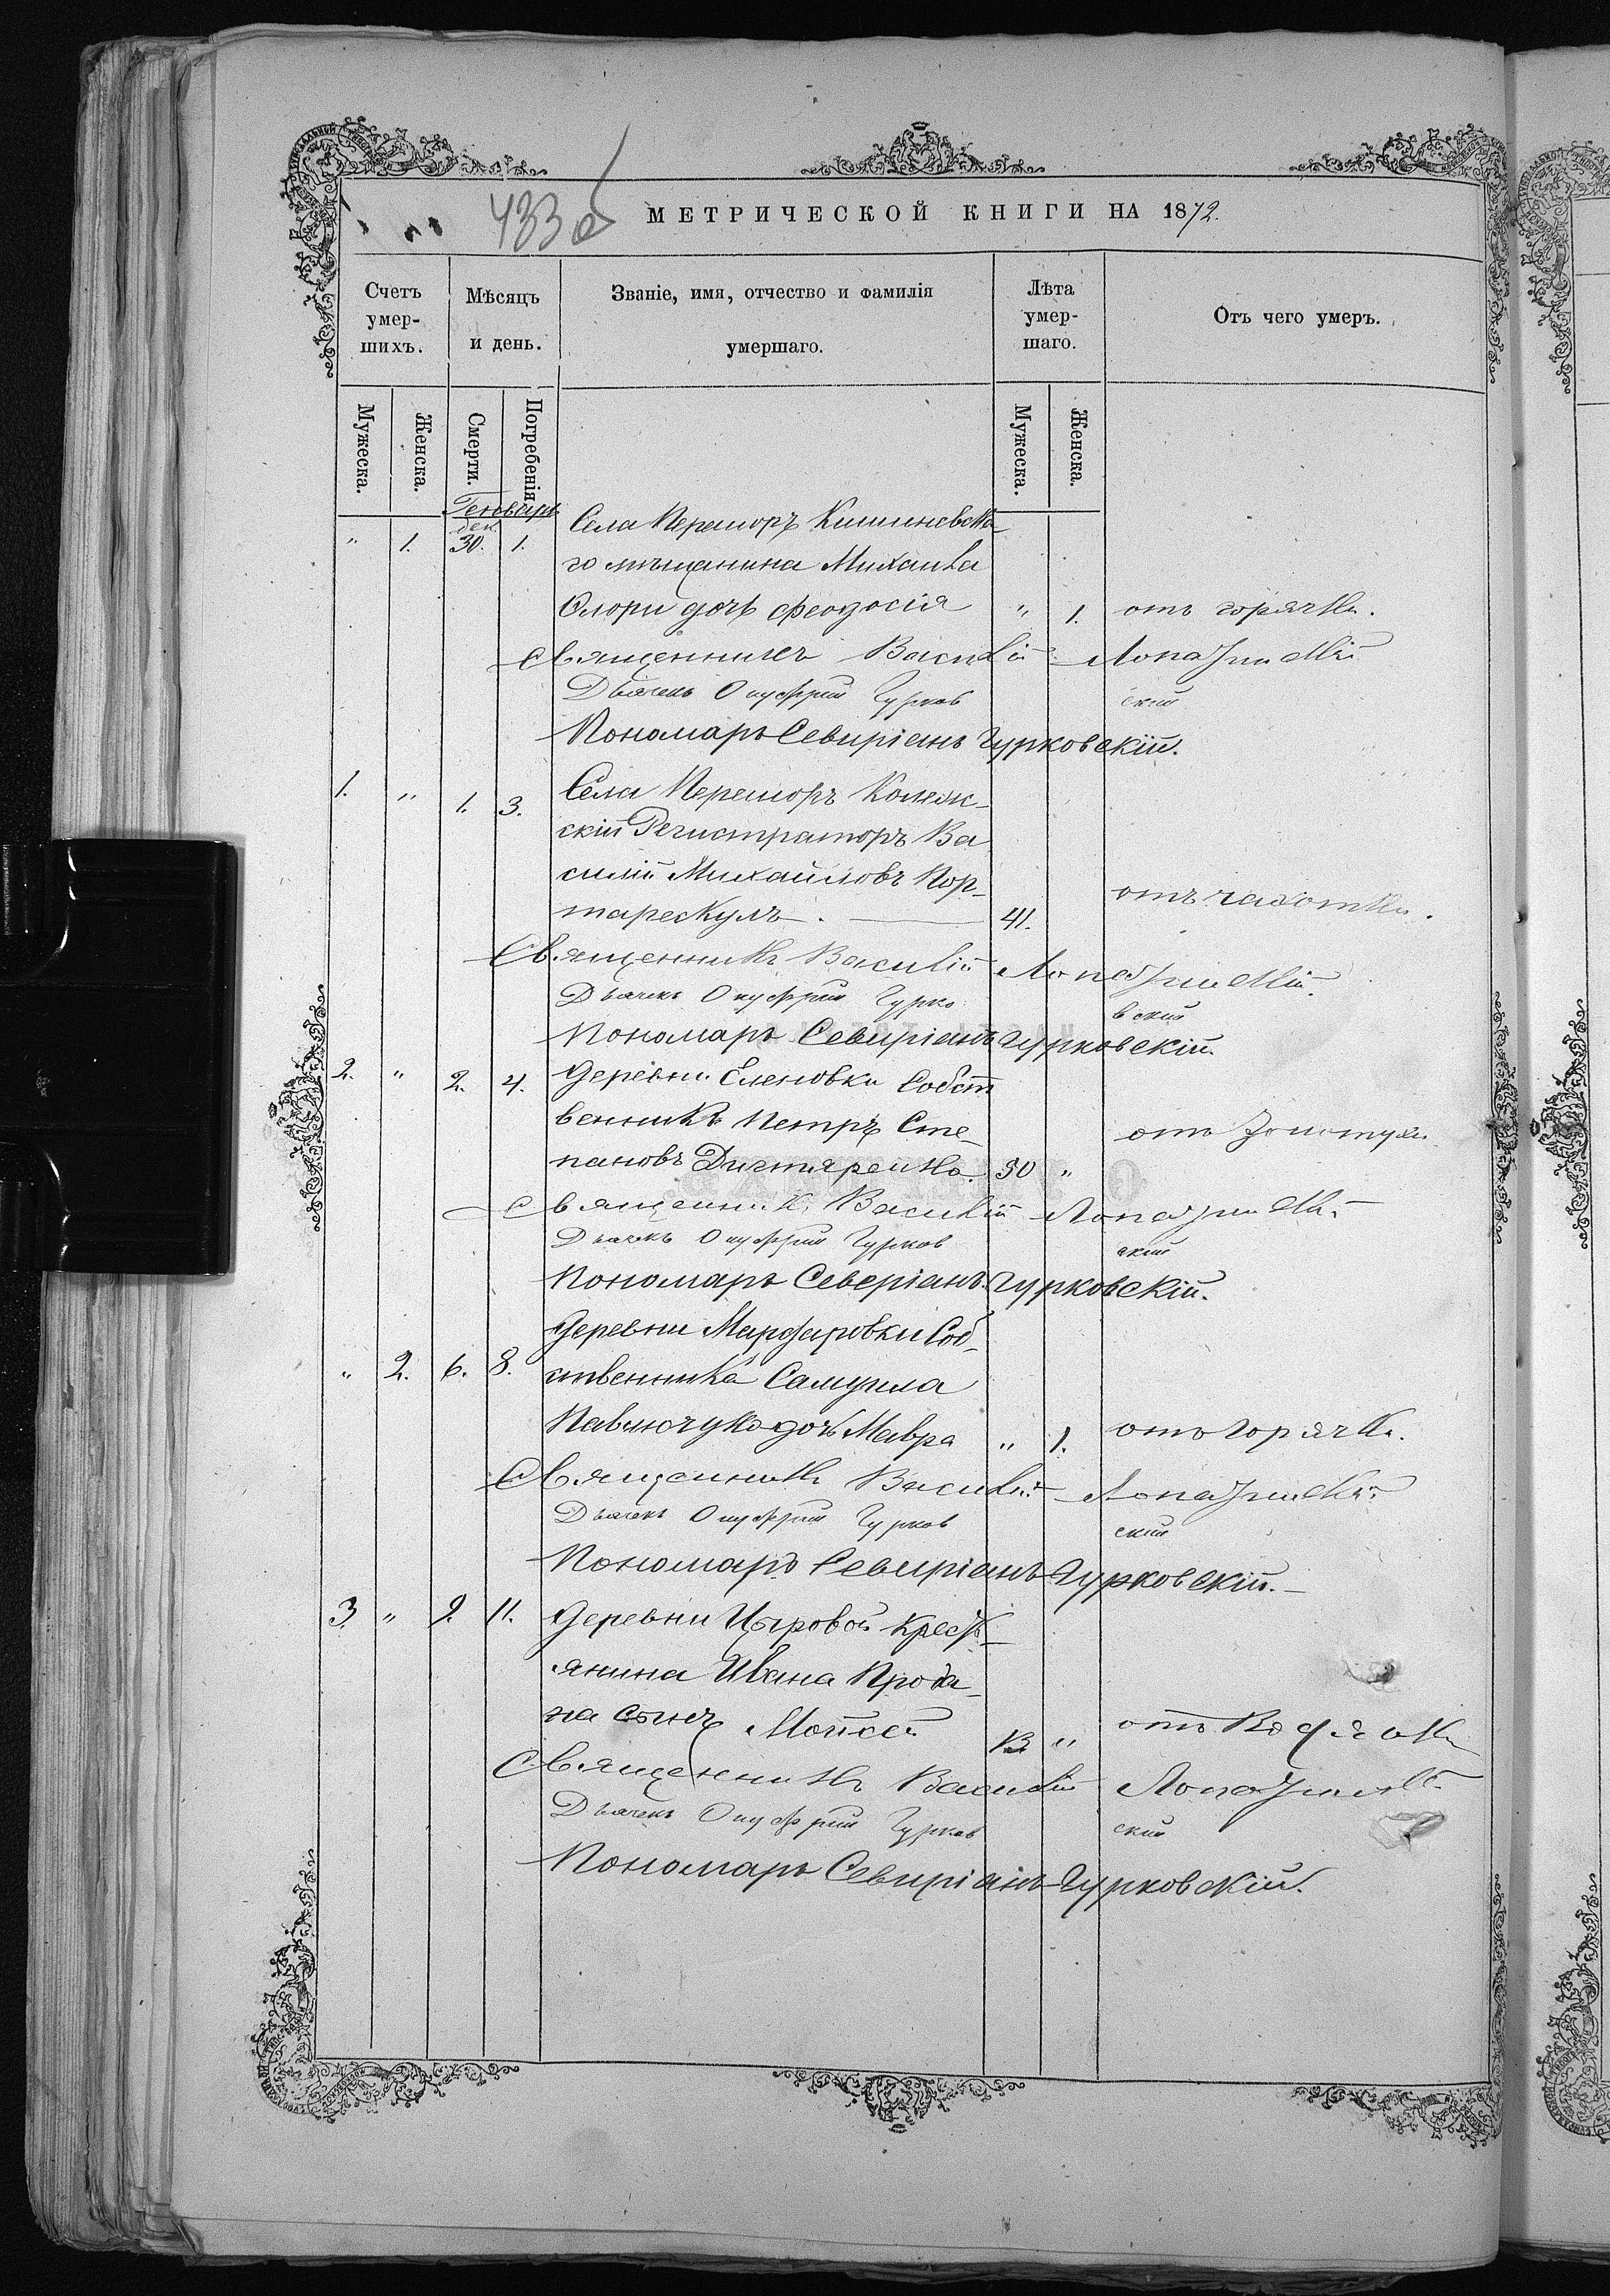 433 об
МЕТРИЧЕСКОЙ КНИГИ НА 1872.
Счетъ умер-шихъ.
Мѣсяцъ и день.
Званіе, имя, отчество и фамилія умершаго.
Лѣта умер-шаго.
Отъ чего умеръ.
Мужеска.
Женска.
Смерти.
Погребенія.
Мужеска.
Женска.
Генварь
дек.
„ 1. 30. 1. Села Перешоръ Кишиневска-
го мѣщанина Михаила
дочь Феодосія „ 1. отъ горячки.
Священникъ Василій
Дьячекъ Онуфрій Гурковскій
Пономарь Севиріанъ Гурковскій.
1. „ 1. 3. Села Перешоръ Колеж-
скій Регистраторъ Ва
силій Михайловъ Пор-
тарескулъ. 41. отъ чахотки.
Священникъ Василій
Дьячекъ Онуфрій Гурковскій
Пономарь Севиріанъ Гурковскій.
2. „ 2. 4. Деревни Еленовки Собст
венникъ Петръ Сте-
пановъ 30 „ отъ
Священникъ Василій
Дьячекъ Онуфрій Гурковскій
Пономарь Северіанъ Гурковскій.
Деревни Марфаровки Соб-
„ 2. 6. 8. ственника Самуила
Павлючука дочь Мавра „ 1. отъ горячки.
Священникъ Василій
Дьячекъ Онуфрій Гурковскій
Пономарь Севиріанъ Гурковскій.
3. „ 9. 11. Деревни Цыровой Кресть-
янина Ивана Прода-
на сынъ Мойсей „ отъ Водянки
Священникъ Василій
Дьячекъ Онуфрій Гурковскій
Пономарь Севиріанъ Гурковскій.